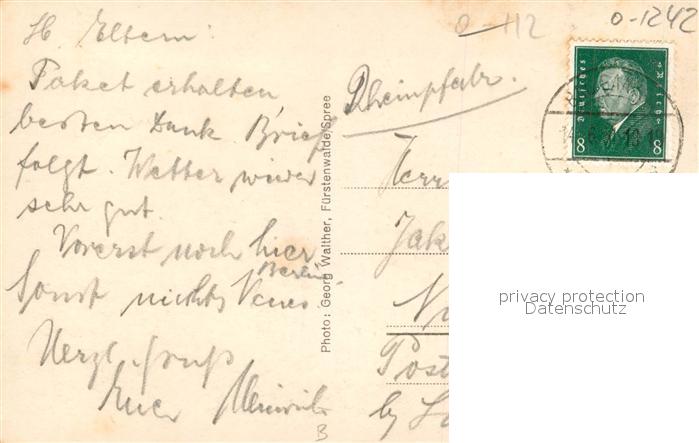 o-112
o-1242
Lb. Eltern:
Paket erhalten
besten Dank. Brief
folgt. Wetter wieder
sehr gut.
Vorerst noch hier
Berlin
Sonst nichts Neues.
Herzl. Gruß
Euer Heinrich
3
Photo: Georg Walther, Fürstenwalde/Spree
Rheinpfalz.
Deutsches Reich
8 8
Herr
Jak
Post
privacy protection
Datenschutz